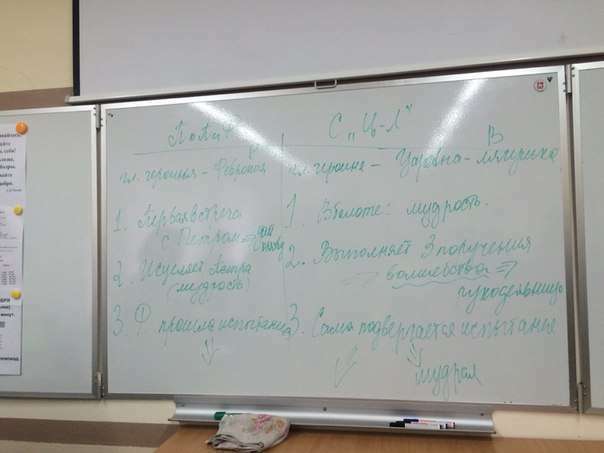 С „Ц-Л"
В
гл. героинья - Феврония
гл. героиня - Царевна-лягушка
1. Первая встреча
с Петром
1. В болоте: мудрость.
2. Исцеляет Петра
(мудрость)
2. Выполняет 3 поручения
волшебства ⇒
рукодельница
3. ① прошла испытания
3. Сама подвергается испытанья
мудрая